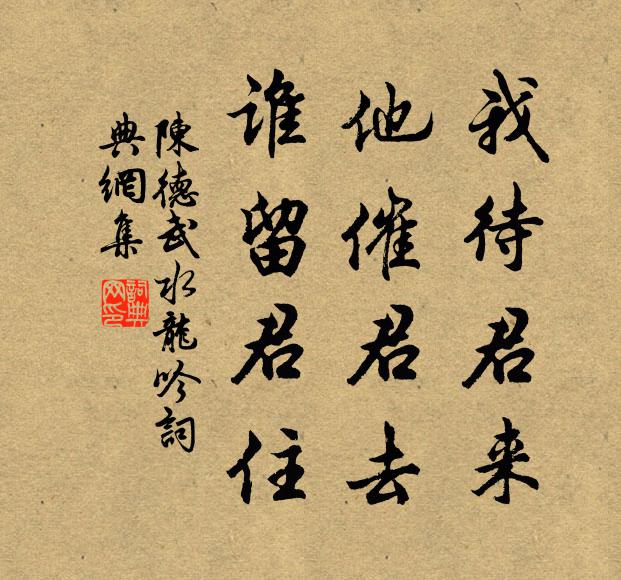 我待君来
他催君去
谁留君住
陳德武水龍吟詞
典網集
詞典網印